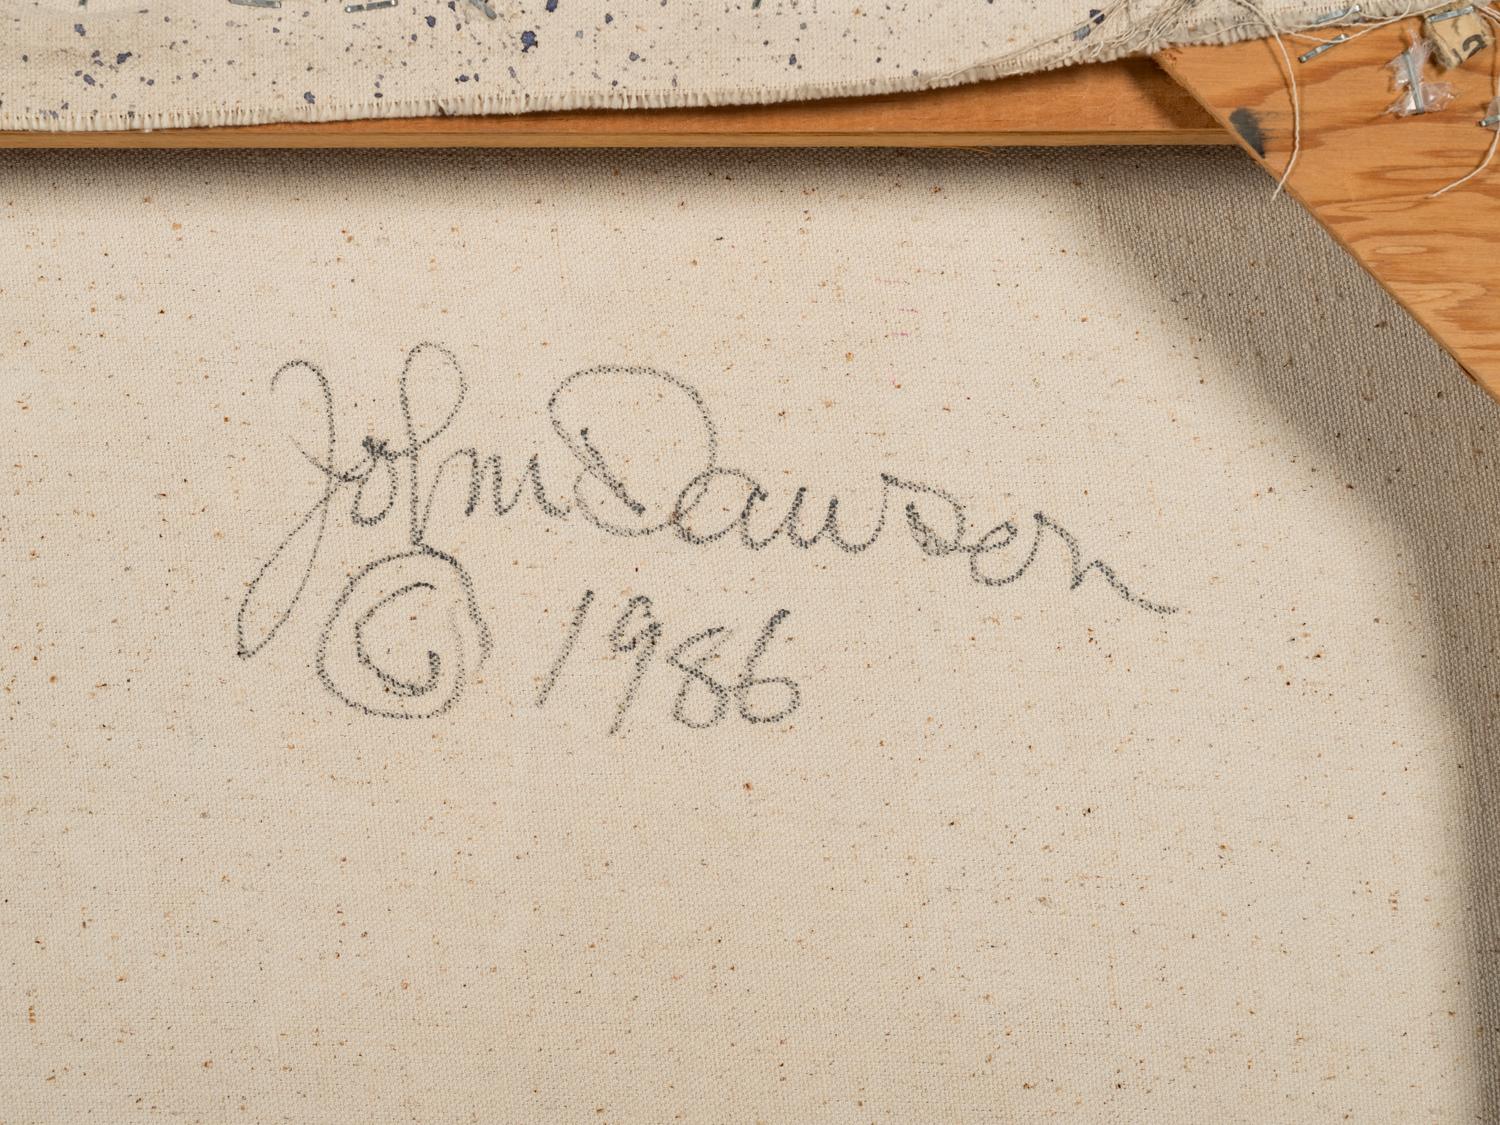 John Dawson
© 1986